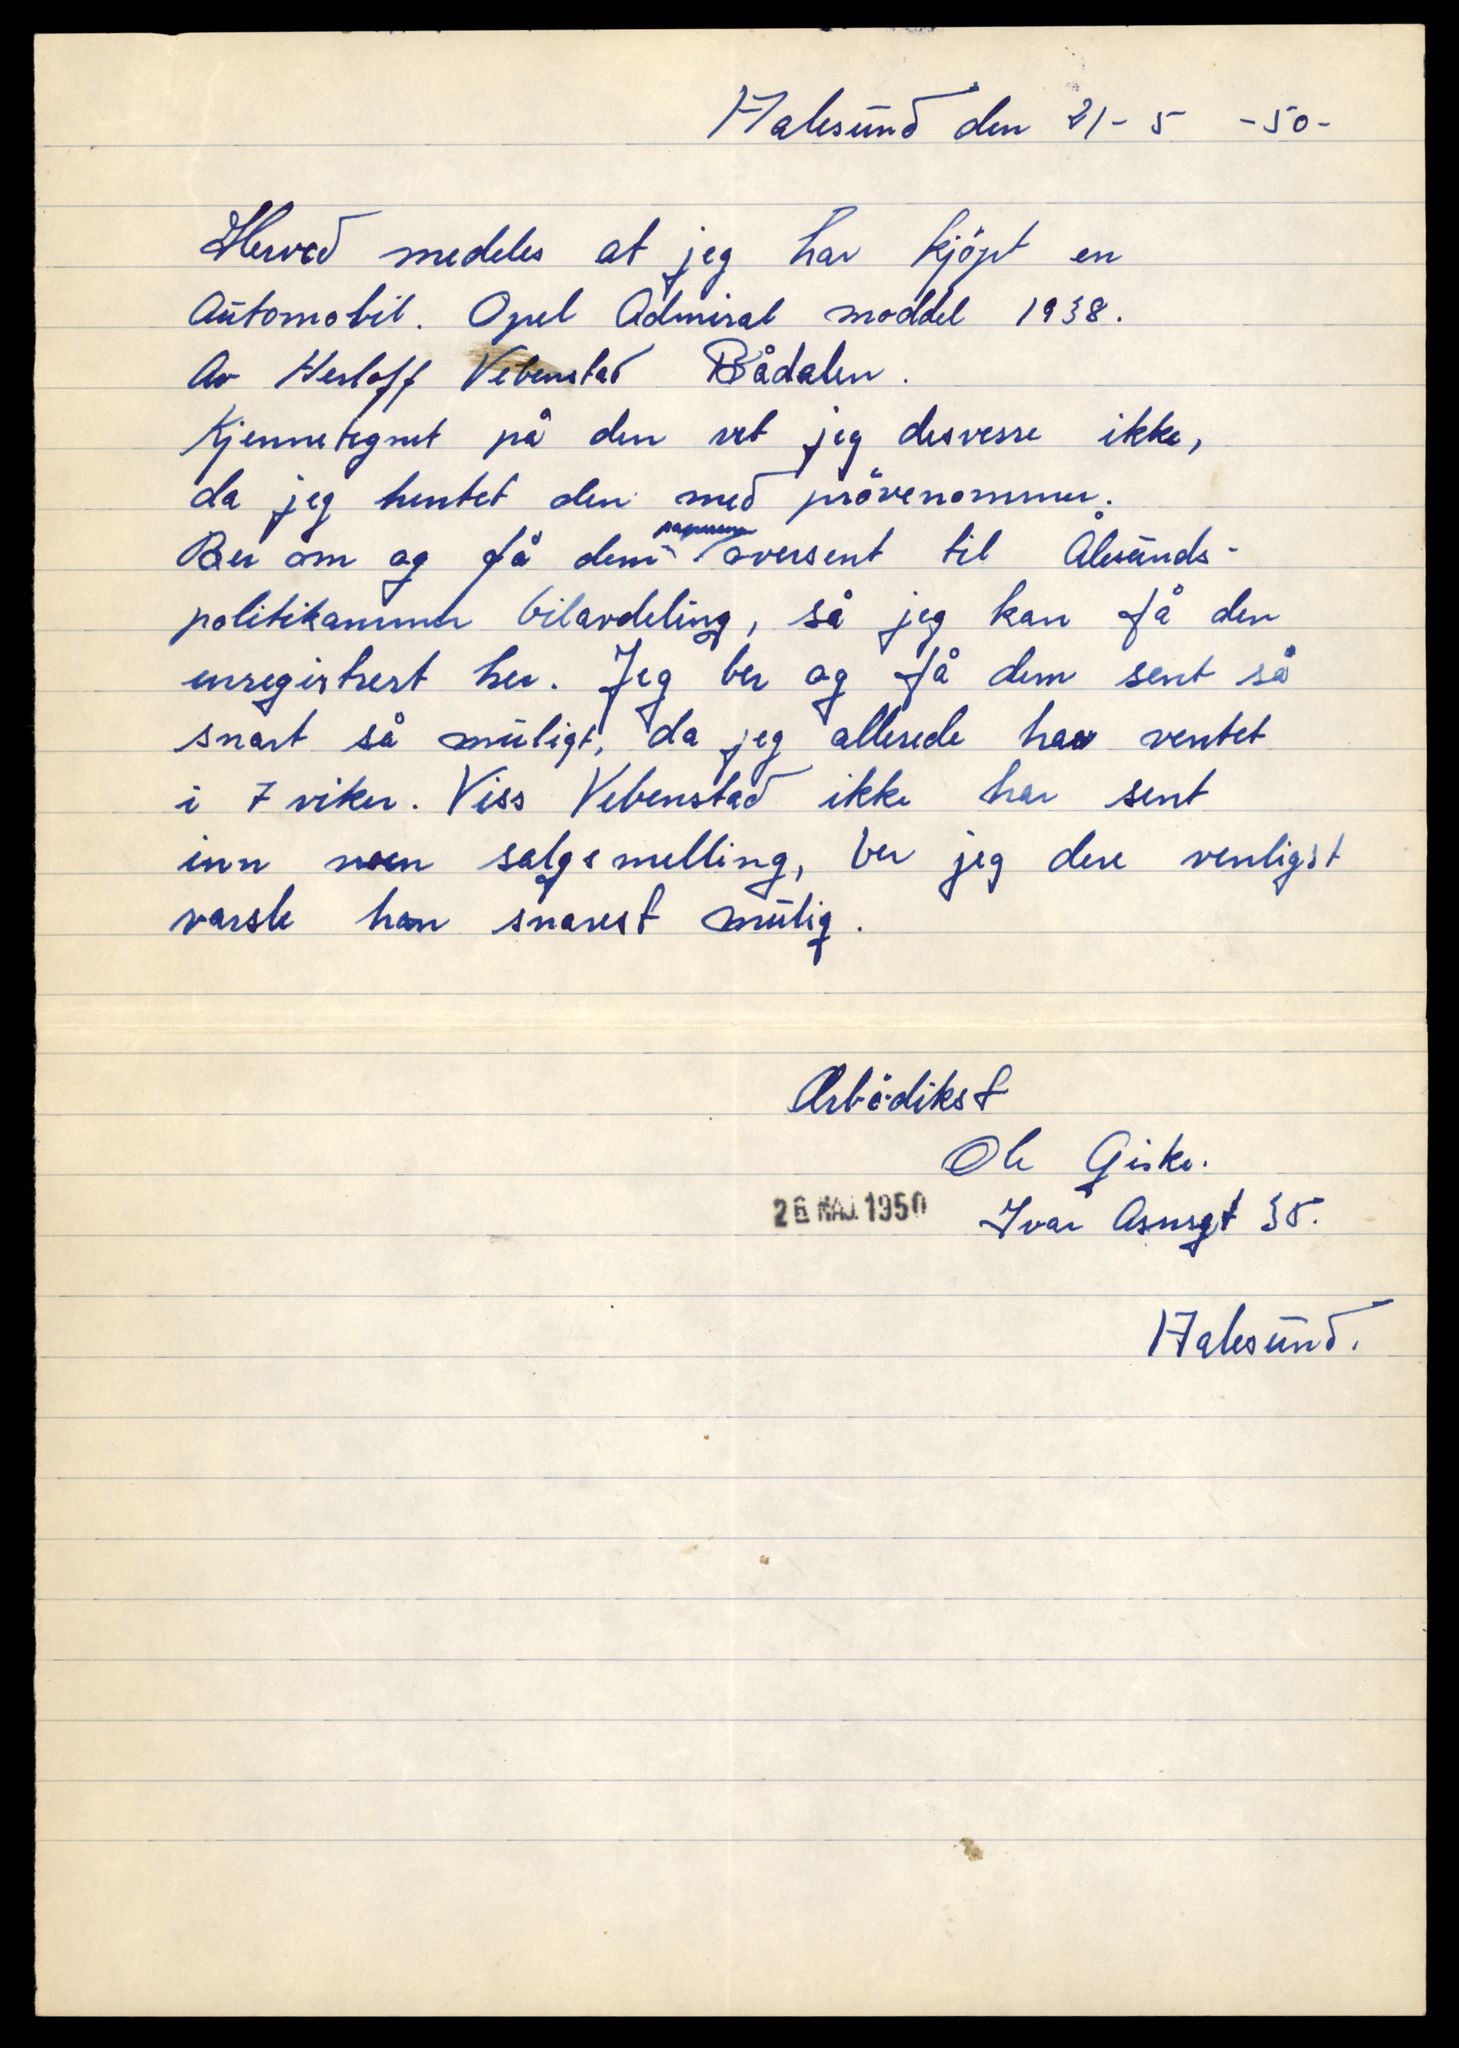 Aalesund den 21-5 -50-
Herved medeles at jeg har kjöpt en
Automobil. Opel Admiral moddel 1938.
Av Herloff Vebenstad Bådalen.
Kjennetegnet på den vet jeg desverre ikke,
da jeg hentet den med prövenommer.
Ber om og få dem papirene oversent til Ålesunds-
politikammer bilavdeling, så jeg kan få den
enregistrert her. Jeg ber og få dem sent så
snart så muligt, da jeg allerede har ventet
i 7 viker. Viss Vebenstad ikke har sent
inn noen salgsmelling, ber jeg dere venligst
varsle han snarest mulig.
Ærbödikst
Ole Giske.
26 MAJ 1950
Ivar Åsensgt 35.
Aalesund.